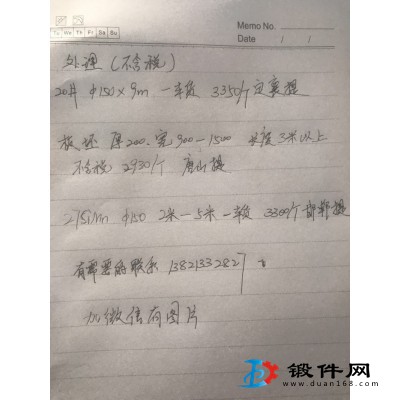 Memo No.
Tu We Th Fr Sa Su
Date / /
处理(不含税)
20# φ150×9m 一车货 3350/个 定襄提
板坯 厚200.宽900-1500 长度3米以上
不含税 2930/个 唐山提
27SiMn φ150 2米-5米 一车货 3300/个 邯郸提
有需要的联系 13821332827
加微信有图片
锻件网
www.duan168.com